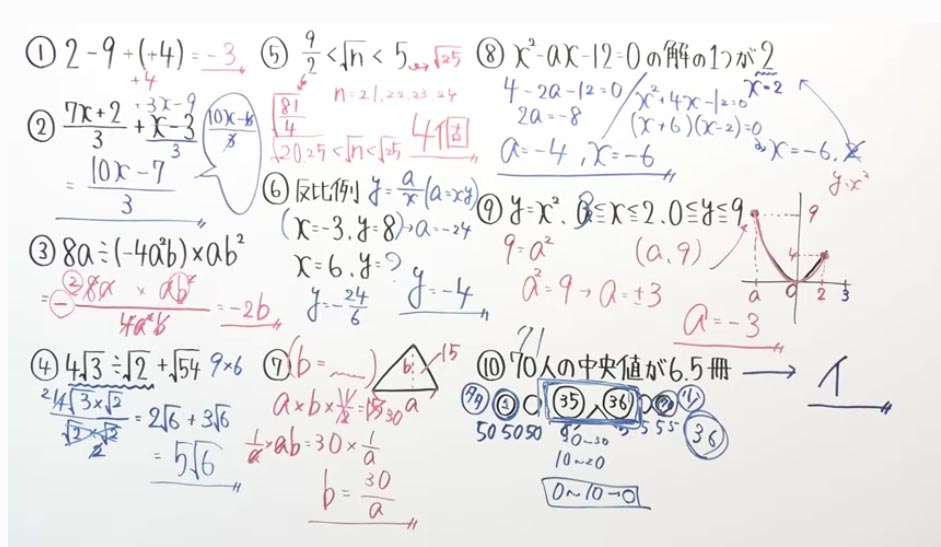 ① 2-9+(+4) = -3
+4
② (7x+2)/3 + (x-3)/3
+3x-9
= (10x-7)/3
③ 8a÷(-4a²b)×ab²
= -2b
④ 4√3÷√2+√54 9×6
= 2√6+3√6
= 5√6
⑤ 9/2<√n<5 √25
√(81/4) n=21,22,23,24
20.25<√n<√25 4個
⑥ 反比例 y=a/x (a=xy)
(x=-3,y=8)→a=-24
x=6,y=?
y=-24/6 y=-4
⑦ (b=
b 15
a
a×b×1/2=15 30
1/a×ab=30×1/a
b=30/a
⑧ x²-ax-12=0の解の1つが2
x=2
4-2a-12=0 x²+4x-12=0
2a=-8 (x+6)(x-2)=0
a=-4,x=-6 x=-6,2
y=x²
⑨ y=x², a≦x≦2,0≦y≦9
9=a² (a,9)
a²=9→a=±3
a=-3
9
4
a 0 2 3
⑩ 70人の中央値が6.5冊 → イ
71
35 36
50 50 50 5 5 5 36
20~30
10~20
0~10→0